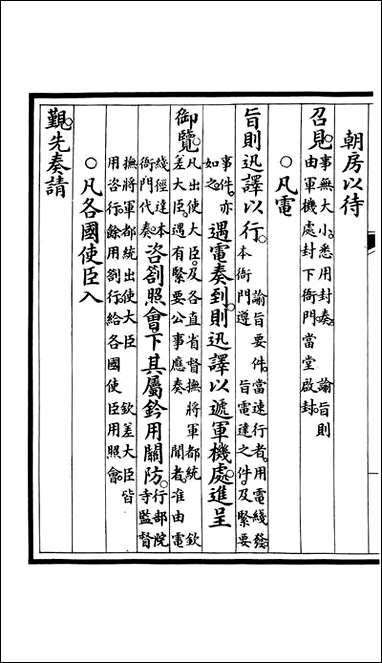 朝房以待
召見。事無大小。悉用封奏。 諭旨則
由軍機處封下衙門當堂啟封。
○凡電
旨則迅譯以行。 諭旨要件。當速行者。用電綫發
本衙門遵 旨電達之件。及緊要
事件。亦
如之。遇電奏到。則迅譯以遞軍機處進呈
御覽。凡出使大臣。及各直省督撫將軍都統 欽
差大臣。遇有緊要公事應奏 聞者。准由電
綫徑達本
衙門代奏。咨劄照會下其屬鈐用關防。行部院
寺監督
撫將軍都統出使大臣 欽差大臣皆
用咨行。餘用劄行。給各國使臣用照會。
○凡各國使臣入
覲。先奏請